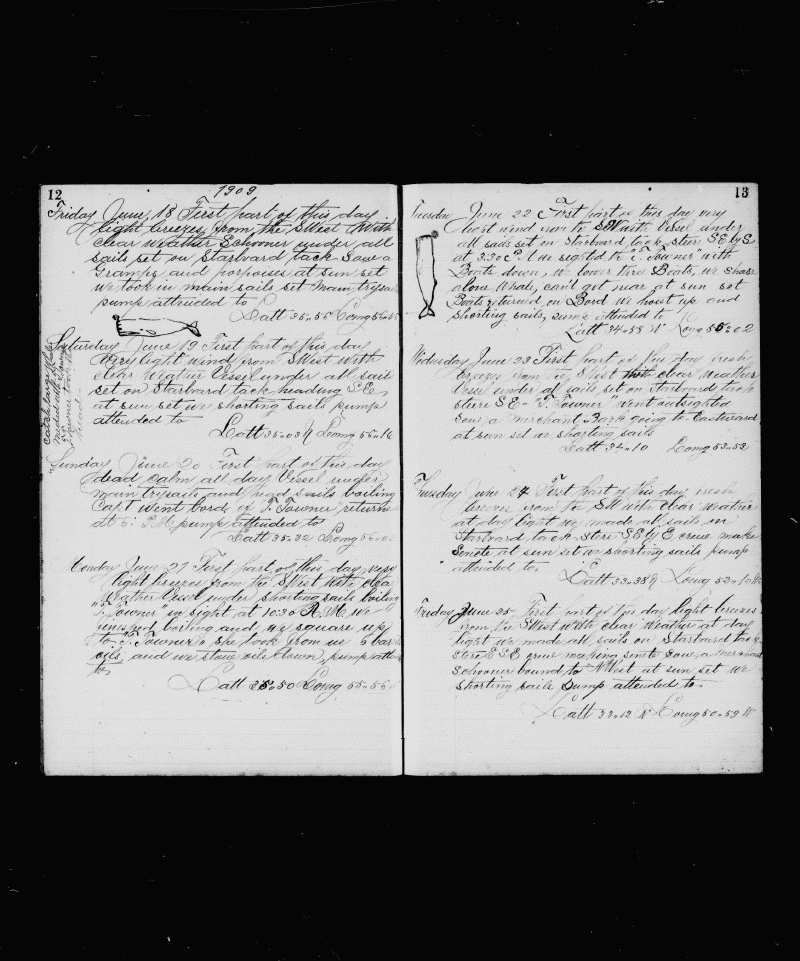 12
1909
Friday June, 18 First part of this day
light breezes from the SWest With
clear weather Schooner under all
sails set on Starbard tack Saw a
Gramps and porpoises at sun set
we took in main sails set main trysail
pump attended to
Latt 35-55 Long
Saturday June 19 First part of this day
Very light wind from SWest with
clear Weather Vessel under all sails
set on Starbard tack heading S.E.
at sun set we shorting sails pump
attended to
Latt 35-03 N Long 55-16
Sunday June 20 First part of this day
dead calm all day Vessel under
main trysails and head sails boiling
Capt went bord of T. Towner return
at P.M pump attended to
Latt 35-32 Long
Monday June 21 First part of this day very
light breezes from the SWest With clear
Weather Vessel under shorting sails boiling
"T. Towner" in sight at 10:30 A.M. We
finished boiling and we square up
to T. Towner & she took from us 6
oils and we stowe oile down, pump
to
Latt 35-50 Long 55-56
13
Tuesday June 22 First part of this day very
wind from the SW with Vessel under
all sails set on Starbard tack steer SE by S
at 3.30 P.M we sighted the "T. Towner" with
Boats down, we lower three Boats, we
alone Whale, can't get near at sun set
Boats returned on Bord we hoist up and
shorting sails, pump attended to
Latt 34-58 N Long 55-02
Wednesday June 23 First part of this day fresh
breezes from the SWest with clear weather
under all sails set on Starbard tack
stere SE - "T. Towner" went outsighted
Saw a merchant Bark going to Eastward
at sun set we shorting sails
Latt 34-10 Long 53-53
June 24 First part of this day fresh
breezes from the SW with clear Weather
at day light we made all sails on
Starbard tack stere SE by E crew make
Senote at sun set we shorting sails pump
attended to
Latt 33-38 N Long 52-10 W
Friday June 25 First part of this day light breezes
from the SWest With clear Weather at day
light we made all sails on Starbard tack
stere ESE crew making a merchant
Schooner bound to NWest at sun set we
shorting sails Pump attended to.
Latt 33-12 N Long 50-59 W